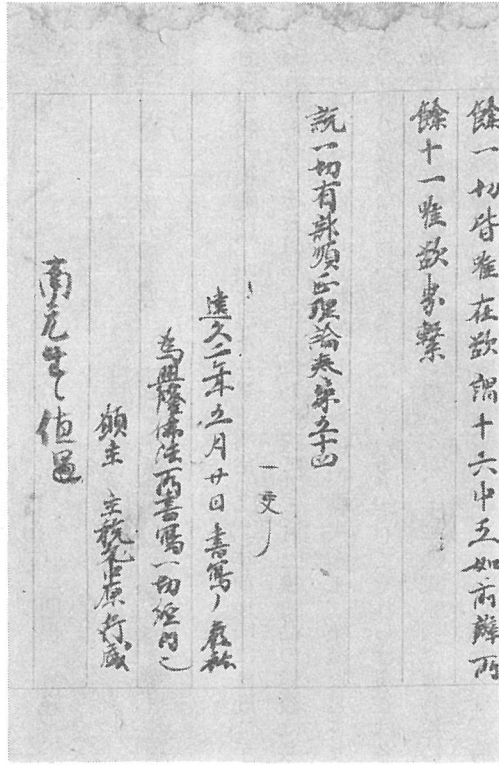 餘一切皆唯在欲謂十六中五如前辯所
餘十一唯欲界繫
説一切有部順正理論卷第五十四
一交了
建久二年五月廿日書寫了
為興隆佛法所書寫一切経内也
願主 主税允中原行盛
南无生々値遇